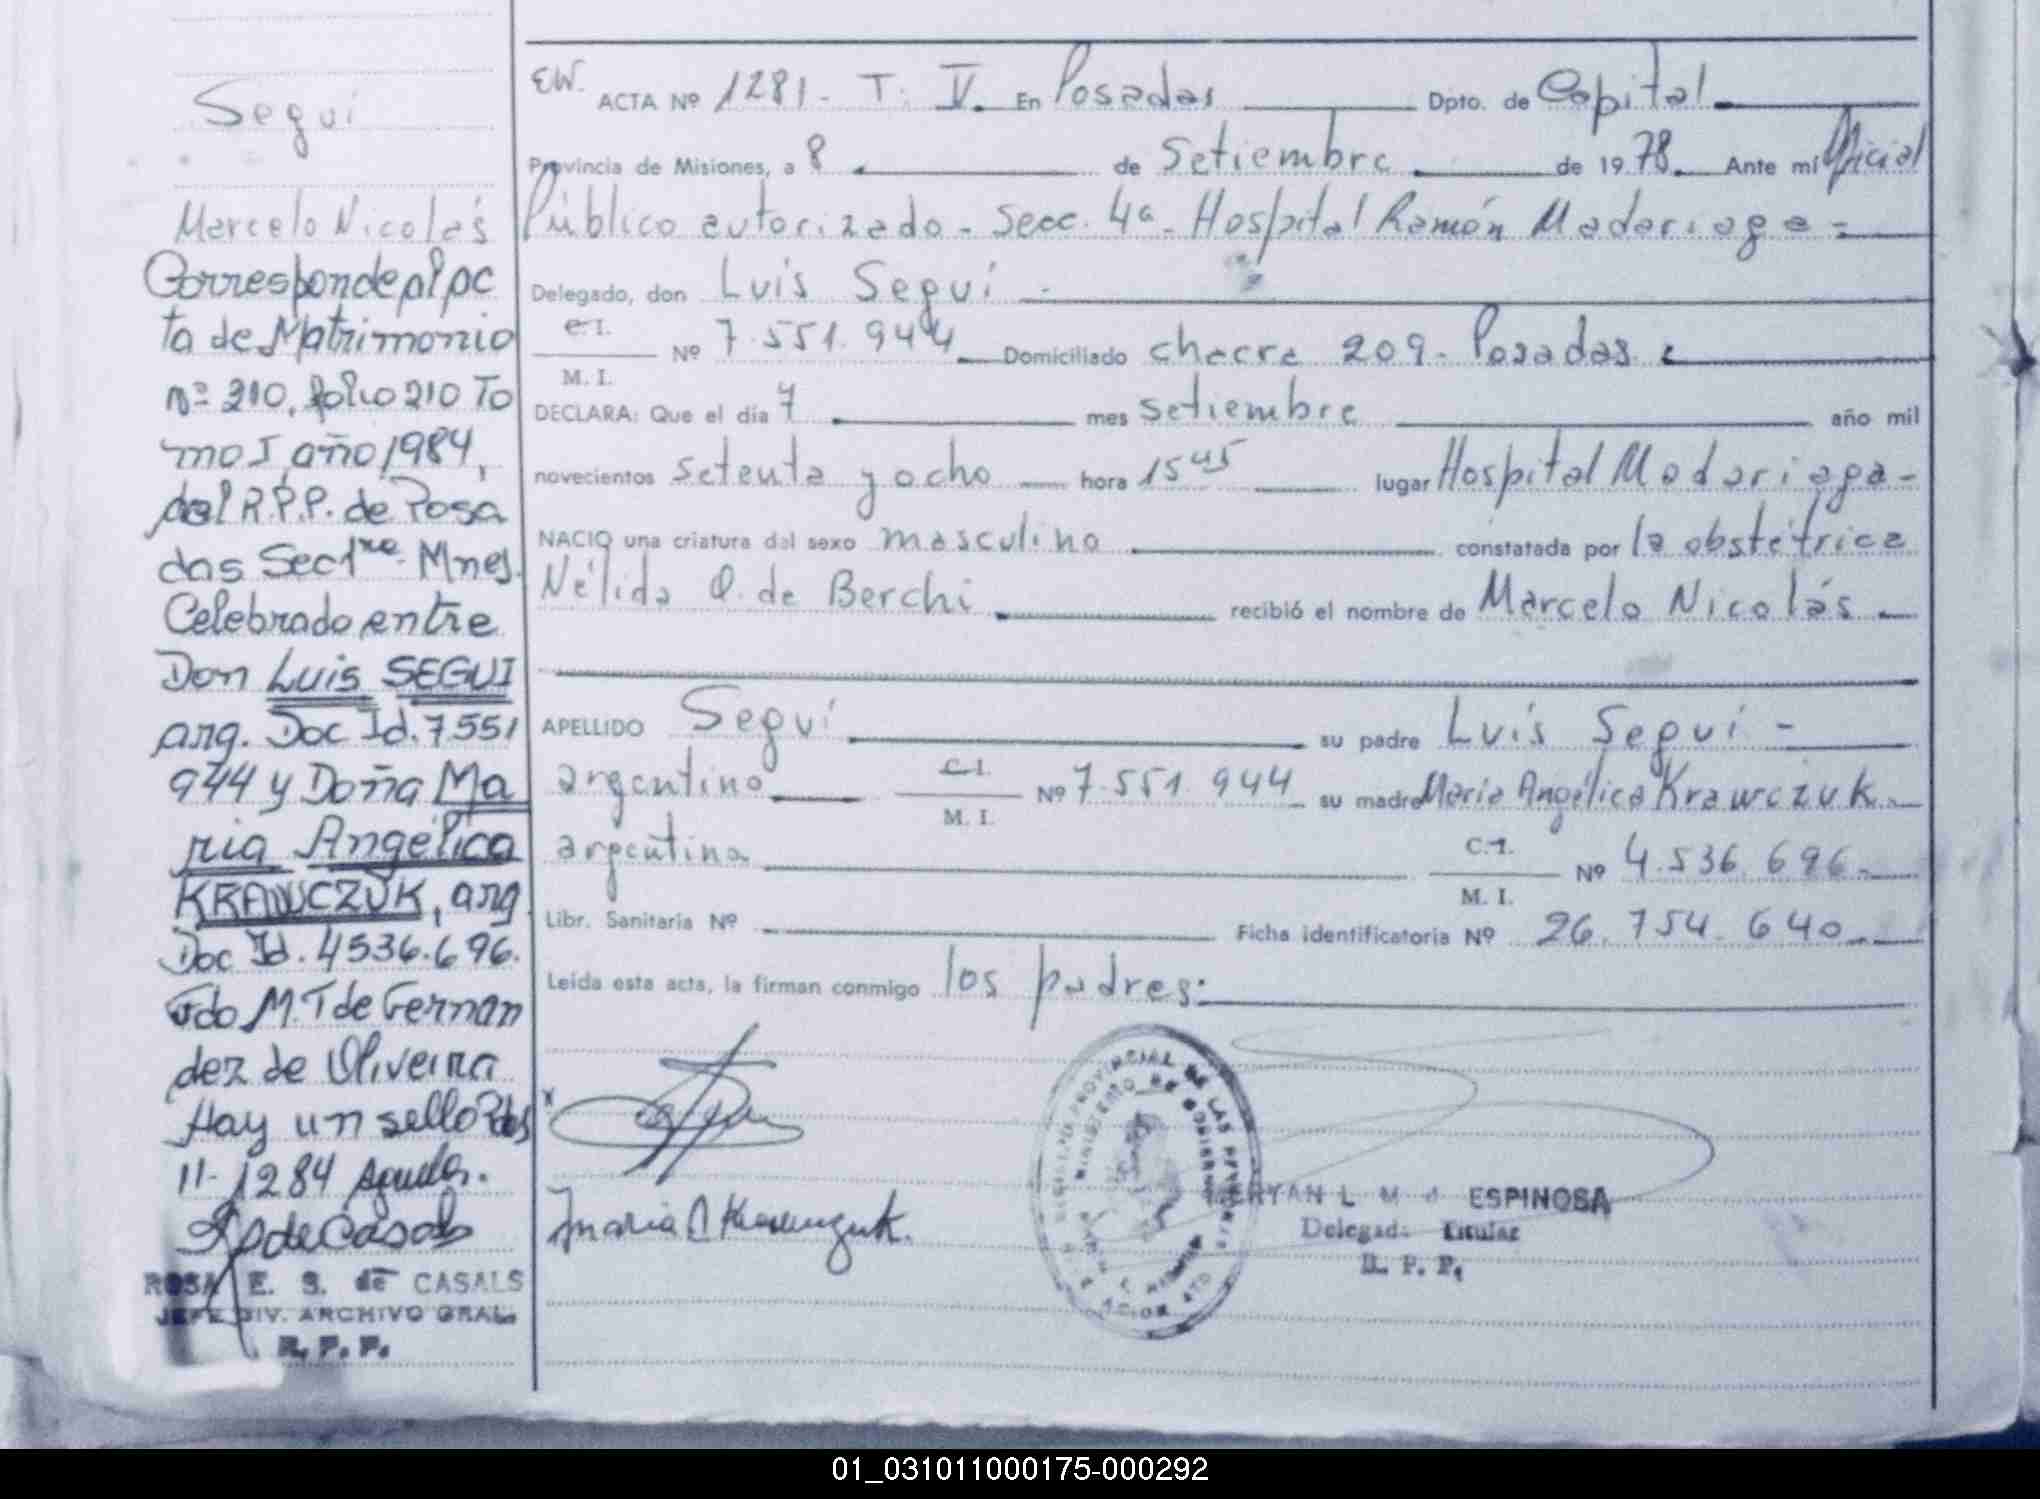 Seguí
Marcelo Nicolás
Corresponde al ac
ta de Matrimonio
nº 210, folio 210 To
mo I año 1984,
del R.P.P. de Posa
das Sec 1ra. Mnes.
Celebrado entre
Don Luis SEGUI
arg. Doc Id. 7551
944 y Doña Ma
ria Angélica
KRAWCZUK, arg
Doc Id. 4536.696.
Fdo M.T de Fernan
dez de Oliveira
Hay un sello Pdas
11-1284
ROSA E. S. de CASALS
JEFE DIV. ARCHIVO GRAL.
R. P. P.
EW. ACTA Nº 1281 - T. V. En Posadas Dpto. de Capital
Provincia de Misiones, a 8 de Setiembre de 1978 Ante mi Oficial
Público autorizado - Secc. 4ª - Hospital Ramón Madariaga -
Delegado, don Luis Seguí -
C.I.
Nº 7.551.944 Domiciliado chacra 209 - Posadas
M. I.
DECLARA: Que el día 7 mes setiembre año mil
novecientos setenta y ocho hora 15 45 lugar Hospital Madariaga -
NACIO una criatura del sexo masculino constatada por la obstétrica
Nélida O. de Berchi recibió el nombre de Marcelo Nicolás
APELLIDO Seguí su padre Luis Seguí -
argentino C.I. M. I. Nº 7.551.944 su madre María Angélica Krawczuk
argentina C.I. M. I. Nº 4.536.696
Libr. Sanitaria Nº Ficha identificatoria Nº 26.754.640
Leída esta acta, la firman conmigo los padres:
x
Maria A Krawczuk.
ESPINOSA
Delegada Titular
R. P. P.
01_031011000175-000292